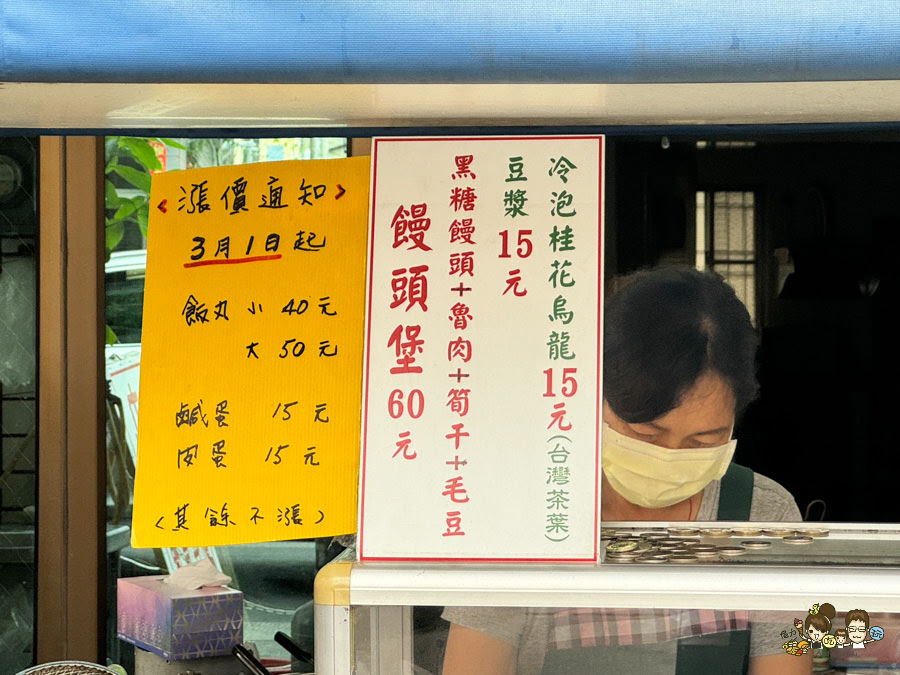 漲價通知
3月1日起
飯丸 小 40元
大 50元
鹹蛋 15元
皮蛋 15元
(其餘不漲)
冷泡桂花烏龍15元(台灣茶葉)
豆漿15元
黑糖饅頭+魯肉+筍干+毛豆
饅頭堡60元